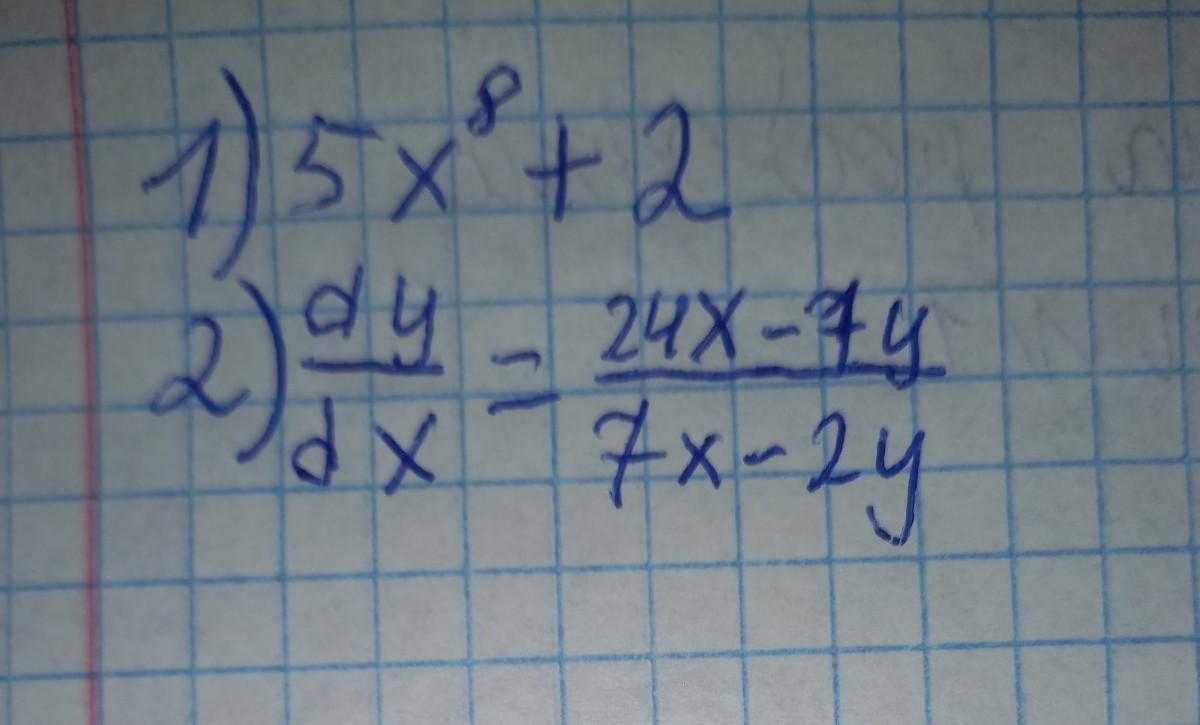 1) 5x⁸ + 2
2) dy/dx = (24x - 7y)/(7x - 2y)